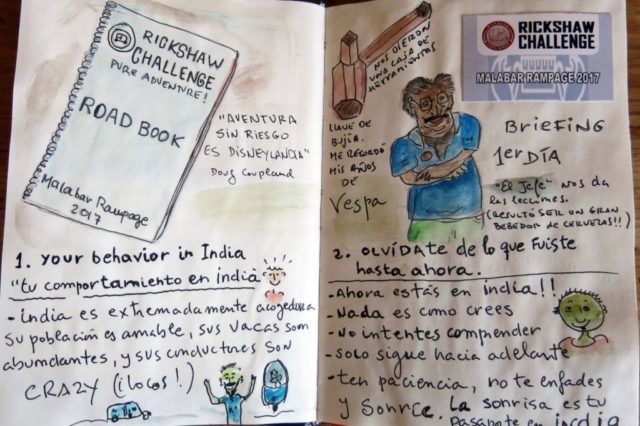 RICKSHAW
CHALLENGE
PURE ADVENTURE!
ROAD BOOK
Malabar Rampage
2017
"AVENTURA
SIN RIESGO
ES DISNEYLANDIA"
Doug Coupland
1. your behavior in India
"tu comportamiento en india
- india es extremadamente acogedora
su población es amable, sus vacas son
abundantes, y sus conductores son
CRAZY (¡locos!)
NOS DIERON
UNA CAJA DE
HERRAMIENTAS
LLAVE DE
BUJIA.
ME RECORDÓ
MIS AÑOS
DE
Vespa
RICKSHAW
CHALLENGE
MALABAR RAMPAGE 2017
BRIEFING
1er DÍA
"El Jefe" nos da
las lecciones.
(RESULTÓ SER UN GRAN
BEBEDOR DE CERVEZAS!!)
2. OLVÍDATE de lo que Fuiste
hasta ahora.
- Ahora estás en india!!
- Nada es como crees
- No intentes comprender
- solo sigue hacia adelante
- ten paciencia, no te enfades
y sonríe. La sonrisa es tu
pasaporte en india